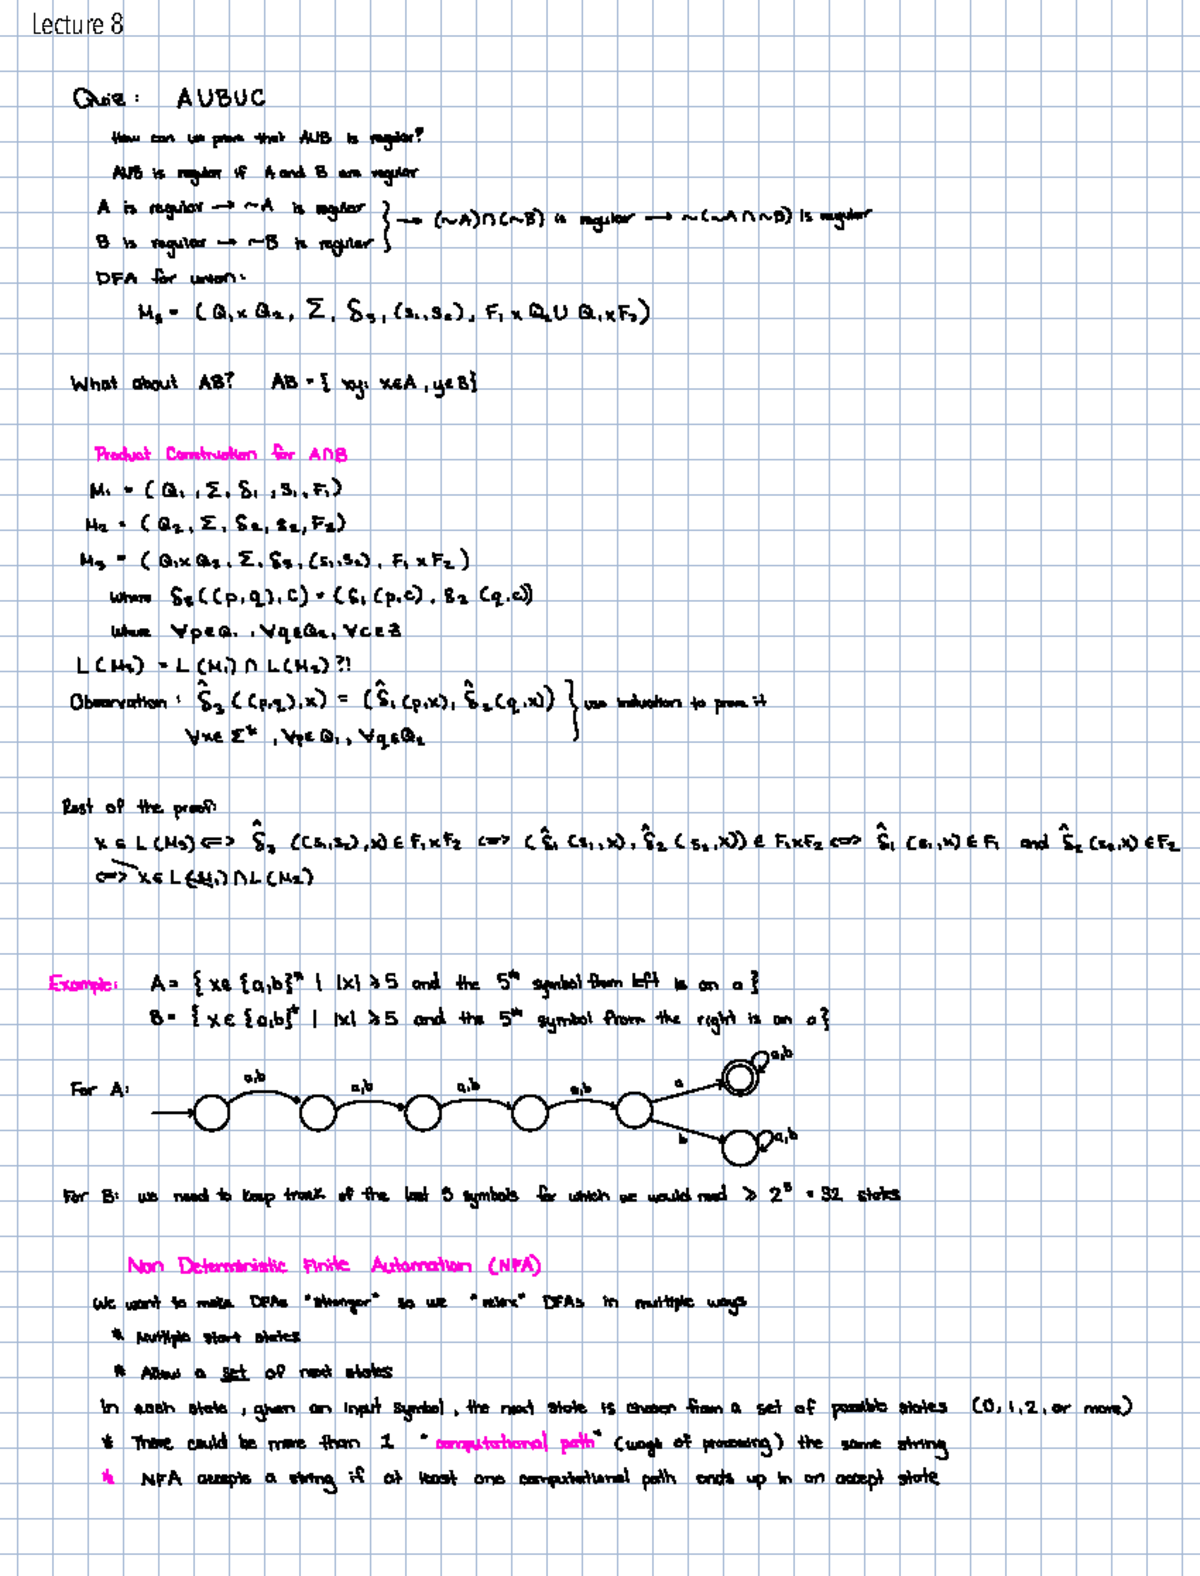 Lecture 8
Quiz: A∪B∪C
How can we prove that A∪B is regular?
A∪B is regular if A and B are regular
A is regular → ~A is regular } → (~A)∩(~B) is regular → ~(~A∩~B) is regular
B is regular → ~B is regular
DFA for union:
M₃ = (Q₁×Q₂, Σ, δ₃, (s₁,s₂), F₁×Q₂∪Q₁×F₂)
What about AB? AB = { xy: x∈A, y∈B}
Product Construction for A∩B
M₁ = (Q₁, Σ, δ₁, s₁, F₁)
M₂ = (Q₂, Σ, δ₂, s₂, F₂)
M₃ = (Q₁×Q₂, Σ, δ₃, (s₁,s₂), F₁×F₂)
where δ₃((p,q),c) = (δ₁(p,c), δ₂(q,c))
where ∀p∈Q₁, ∀q∈Q₂, ∀c∈Σ
L(M₃) = L(M₁) ∩ L(M₂)?!
Observation: δ̂₃((p,q),x) = (δ̂₁(p,x), δ̂₂(q,x)) } use induction to prove it
∀x∈Σ*, ∀p∈Q₁, ∀q∈Q₂
Rest of the proof:
x∈L(M₃) <=> δ̂₃((s₁,s₂),x)∈F₁×F₂ <=> (δ̂₁(s₁,x), δ̂₂(s₂,x))∈F₁×F₂ <=> δ̂₁(s₁,x)∈F₁ and δ̂₂(s₂,x)∈F₂
<=> x∈L(M₁)∩L(M₂)
Example: A = { x∈{a,b}* | |x|≥5 and the 5th symbol from left is an a}
B = { x∈{a,b}* | |x|≥5 and the 5th symbol from the right is an a}
For A: a,b a,b a,b a,b a a,b
b a,b
For B: we need to keep track of the last 5 symbols for which we would need ≥ 2⁵ = 32 states
Non Deterministic Finite Automation (NFA)
We want to make DFAs "stronger" so we "relax" DFAs in multiple ways
* Multiple start states
* Allow a set of next states
In each state, given an input symbol, the next state is chosen from a set of possible states (0,1,2, or more)
* There could be more than 1 "computational path" (ways of processing) the same string
* NFA accepts a string if at least one computational path ends up in an accept state